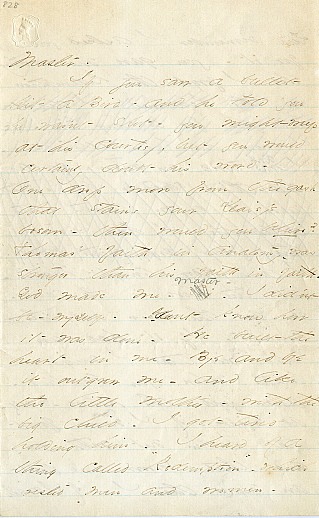 828
Master.
If you saw a bullet
hit a Bird - and he told you
he was'nt shot - you might weep
at his courtesy, but you would
certainly doubt his word -
One drop more from the gash
that stains your Daisy's
bosom - then would you believe?
Thomas' faith in Anatomy, was
stronger than his faith in faith.
God made me - Master - I did'nt
be - myself - I dont know how
it was done - He built the
heart in me - Bye and bye
it outgrew me - and like
the little mother - with the
big child - I got tired
holding him - I heard of a
thing called "Redemption" - which
rested men and women -